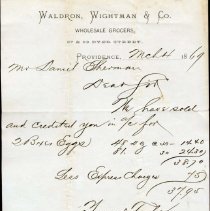 WALDRON, WIGHTMAN & CO.
WHOLESALE GROCERS,
DYER STREET.
PROVIDENCE, Mch 4 1869
Mr Daniel Sherman
Dear Sir
We have sold
and credited you in a/c for
2 Bxs Eggs 48 dz @ 30 14.40
81. @ 30 24.30
38.70
Less Express Charges 75
37.95